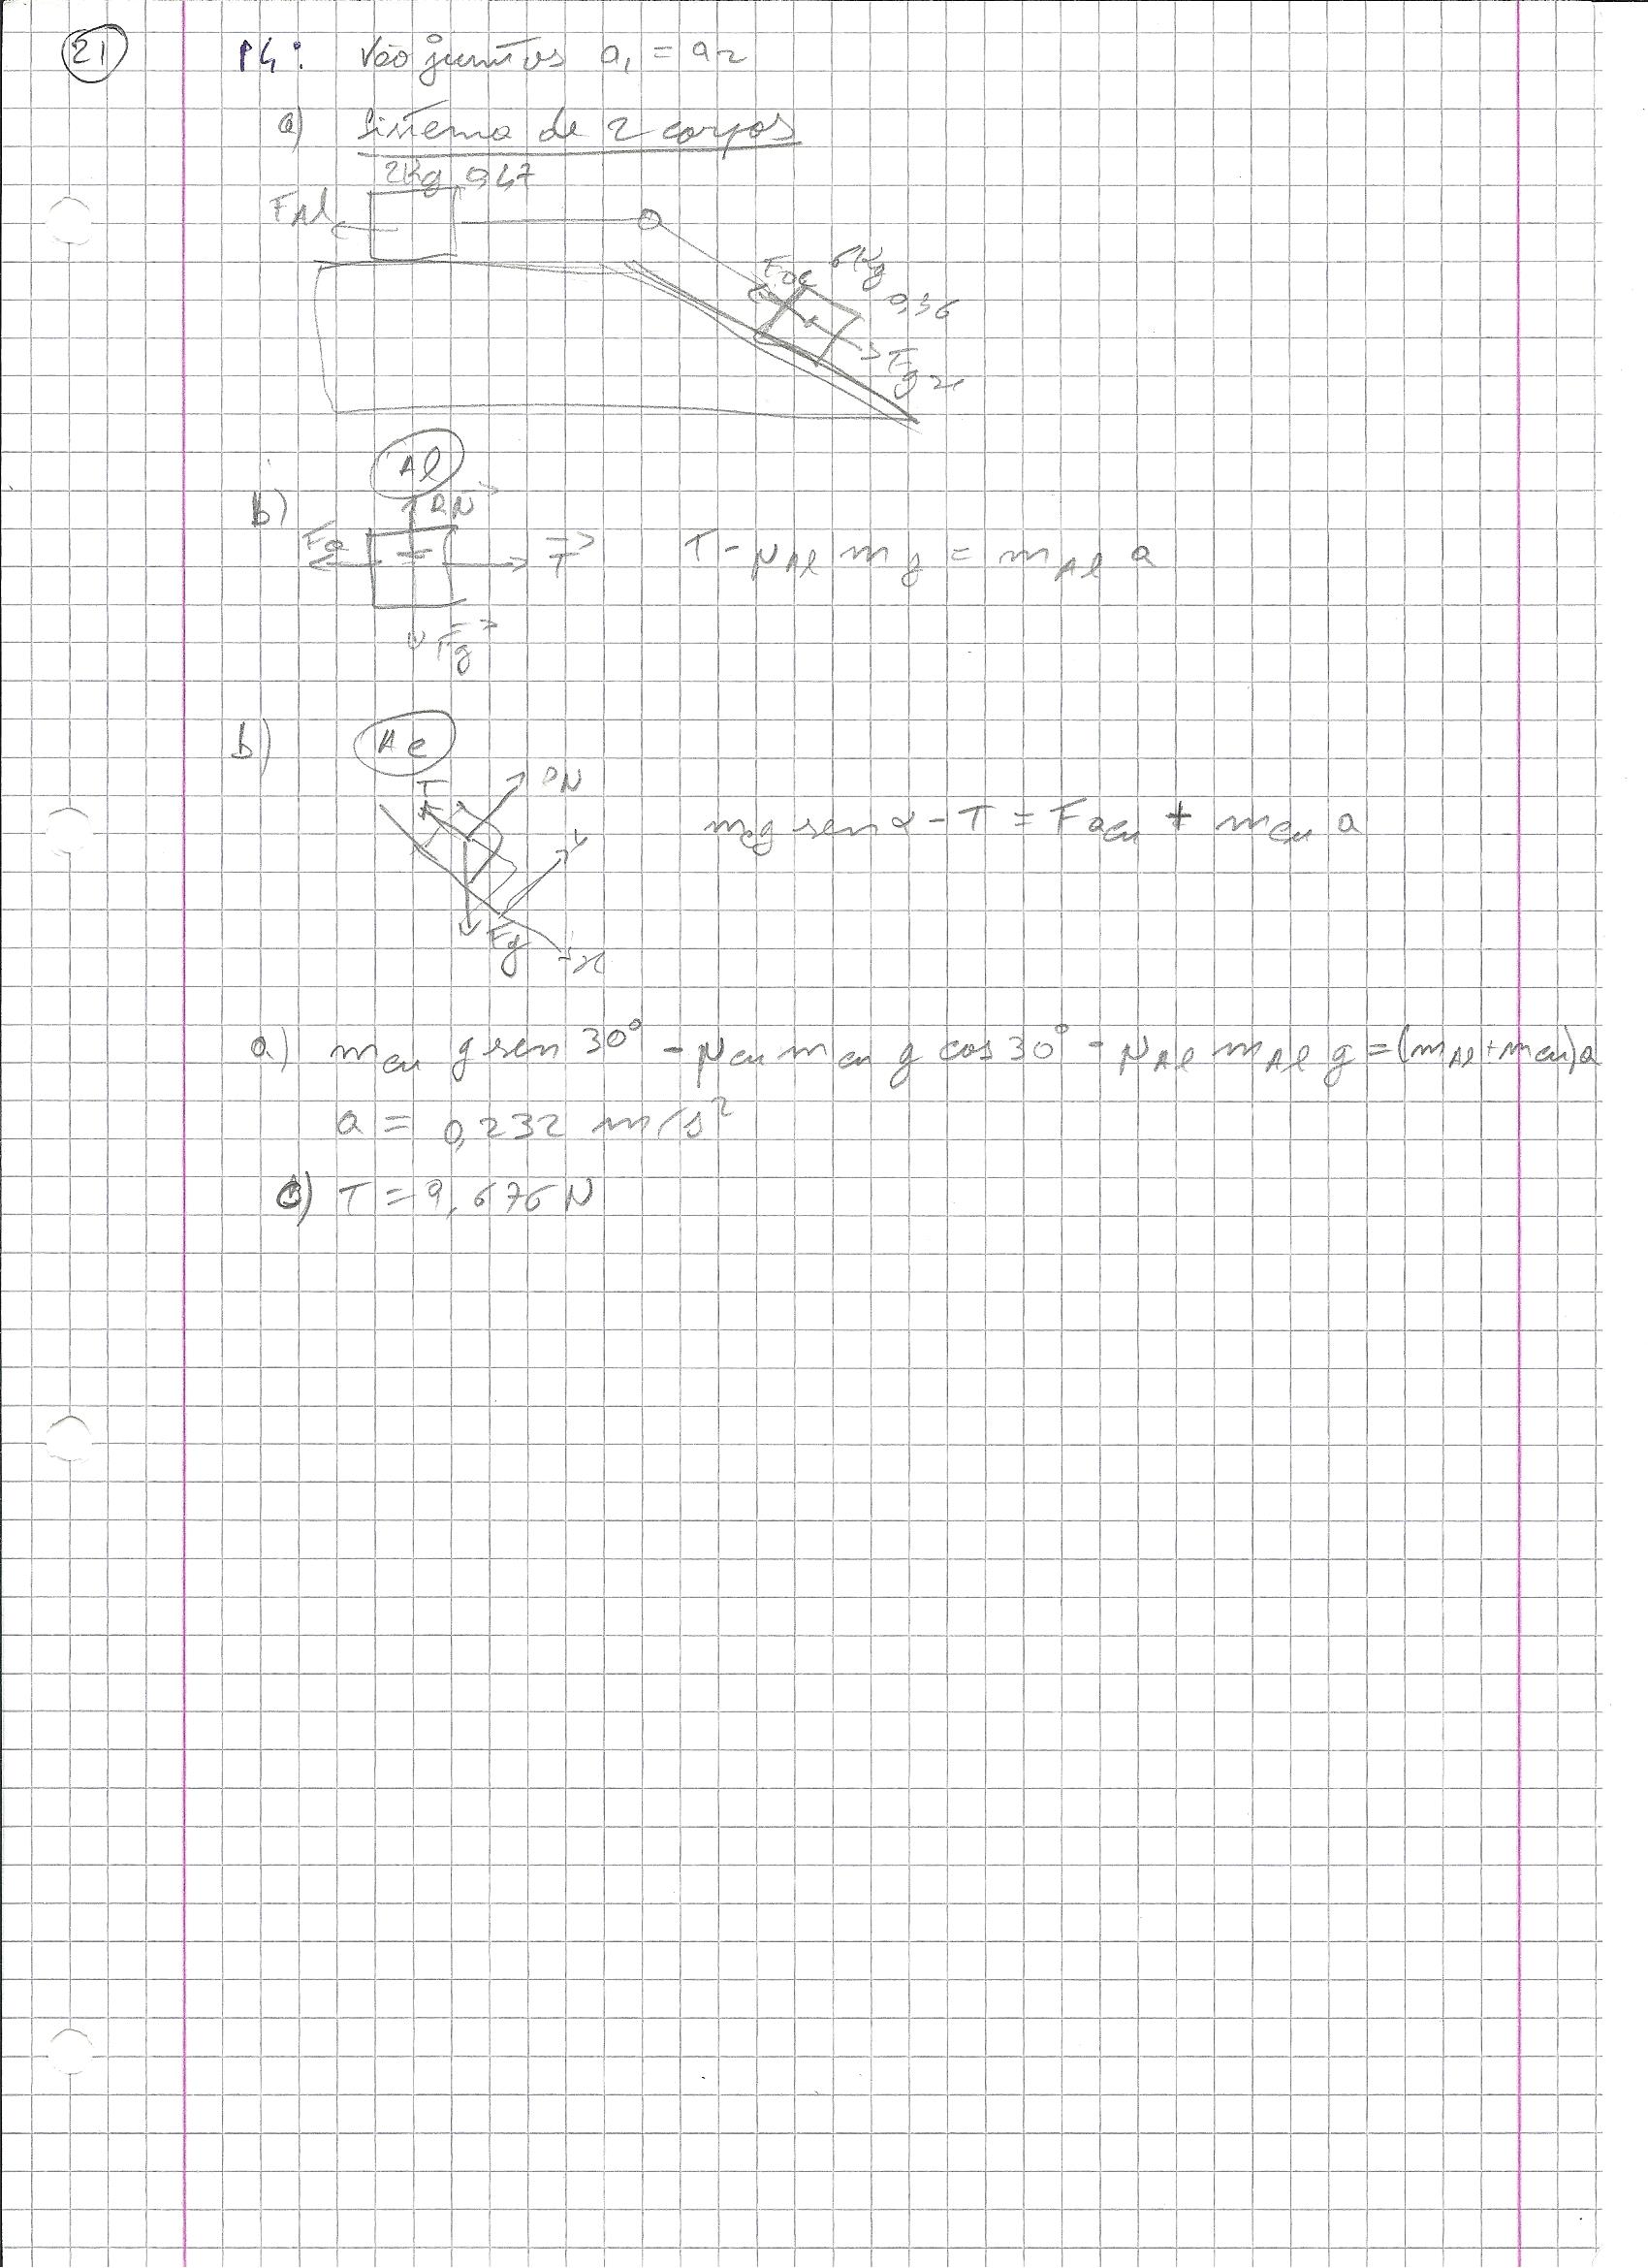 21
P4: Vão juntos a₁ = a₂
a) Sistema de 2 corpos
2Kg 0,47
FAl
6Kg
0,36
Fg2x
Al
b) RN
Fa T T - μAl m g = mAl a
Fg
b) Ac
T RN
mcg sen α - T = Facu + mcu a
Fg x
a) mcu g sen 30° - μcu mcu g cos 30° - μAl mAl g = (mAl + mcu)a
a = 0,232 m/s²
c) T = 9,676 N